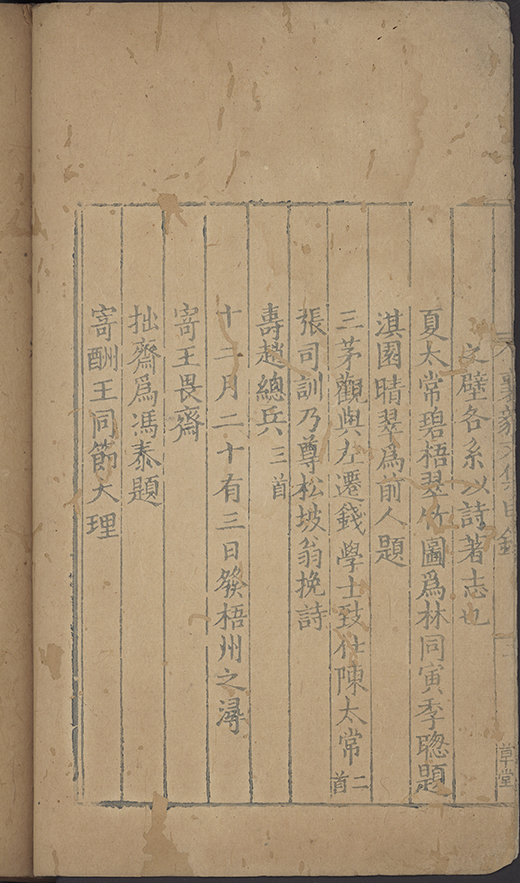 之壁各系以詩著志也
夏太常碧梧翠竹圖爲林同寅季聰題
淇園晴翠爲前人題
三茅觀與左遷錢學士致仕陳太常二首
張司訓乃尊松坡翁挽詩
壽趙總兵三首
十二月二十有三日發梧州之潯
寄王畏齋
拙齋爲馮泰題
寄酬王同節大理
草堂